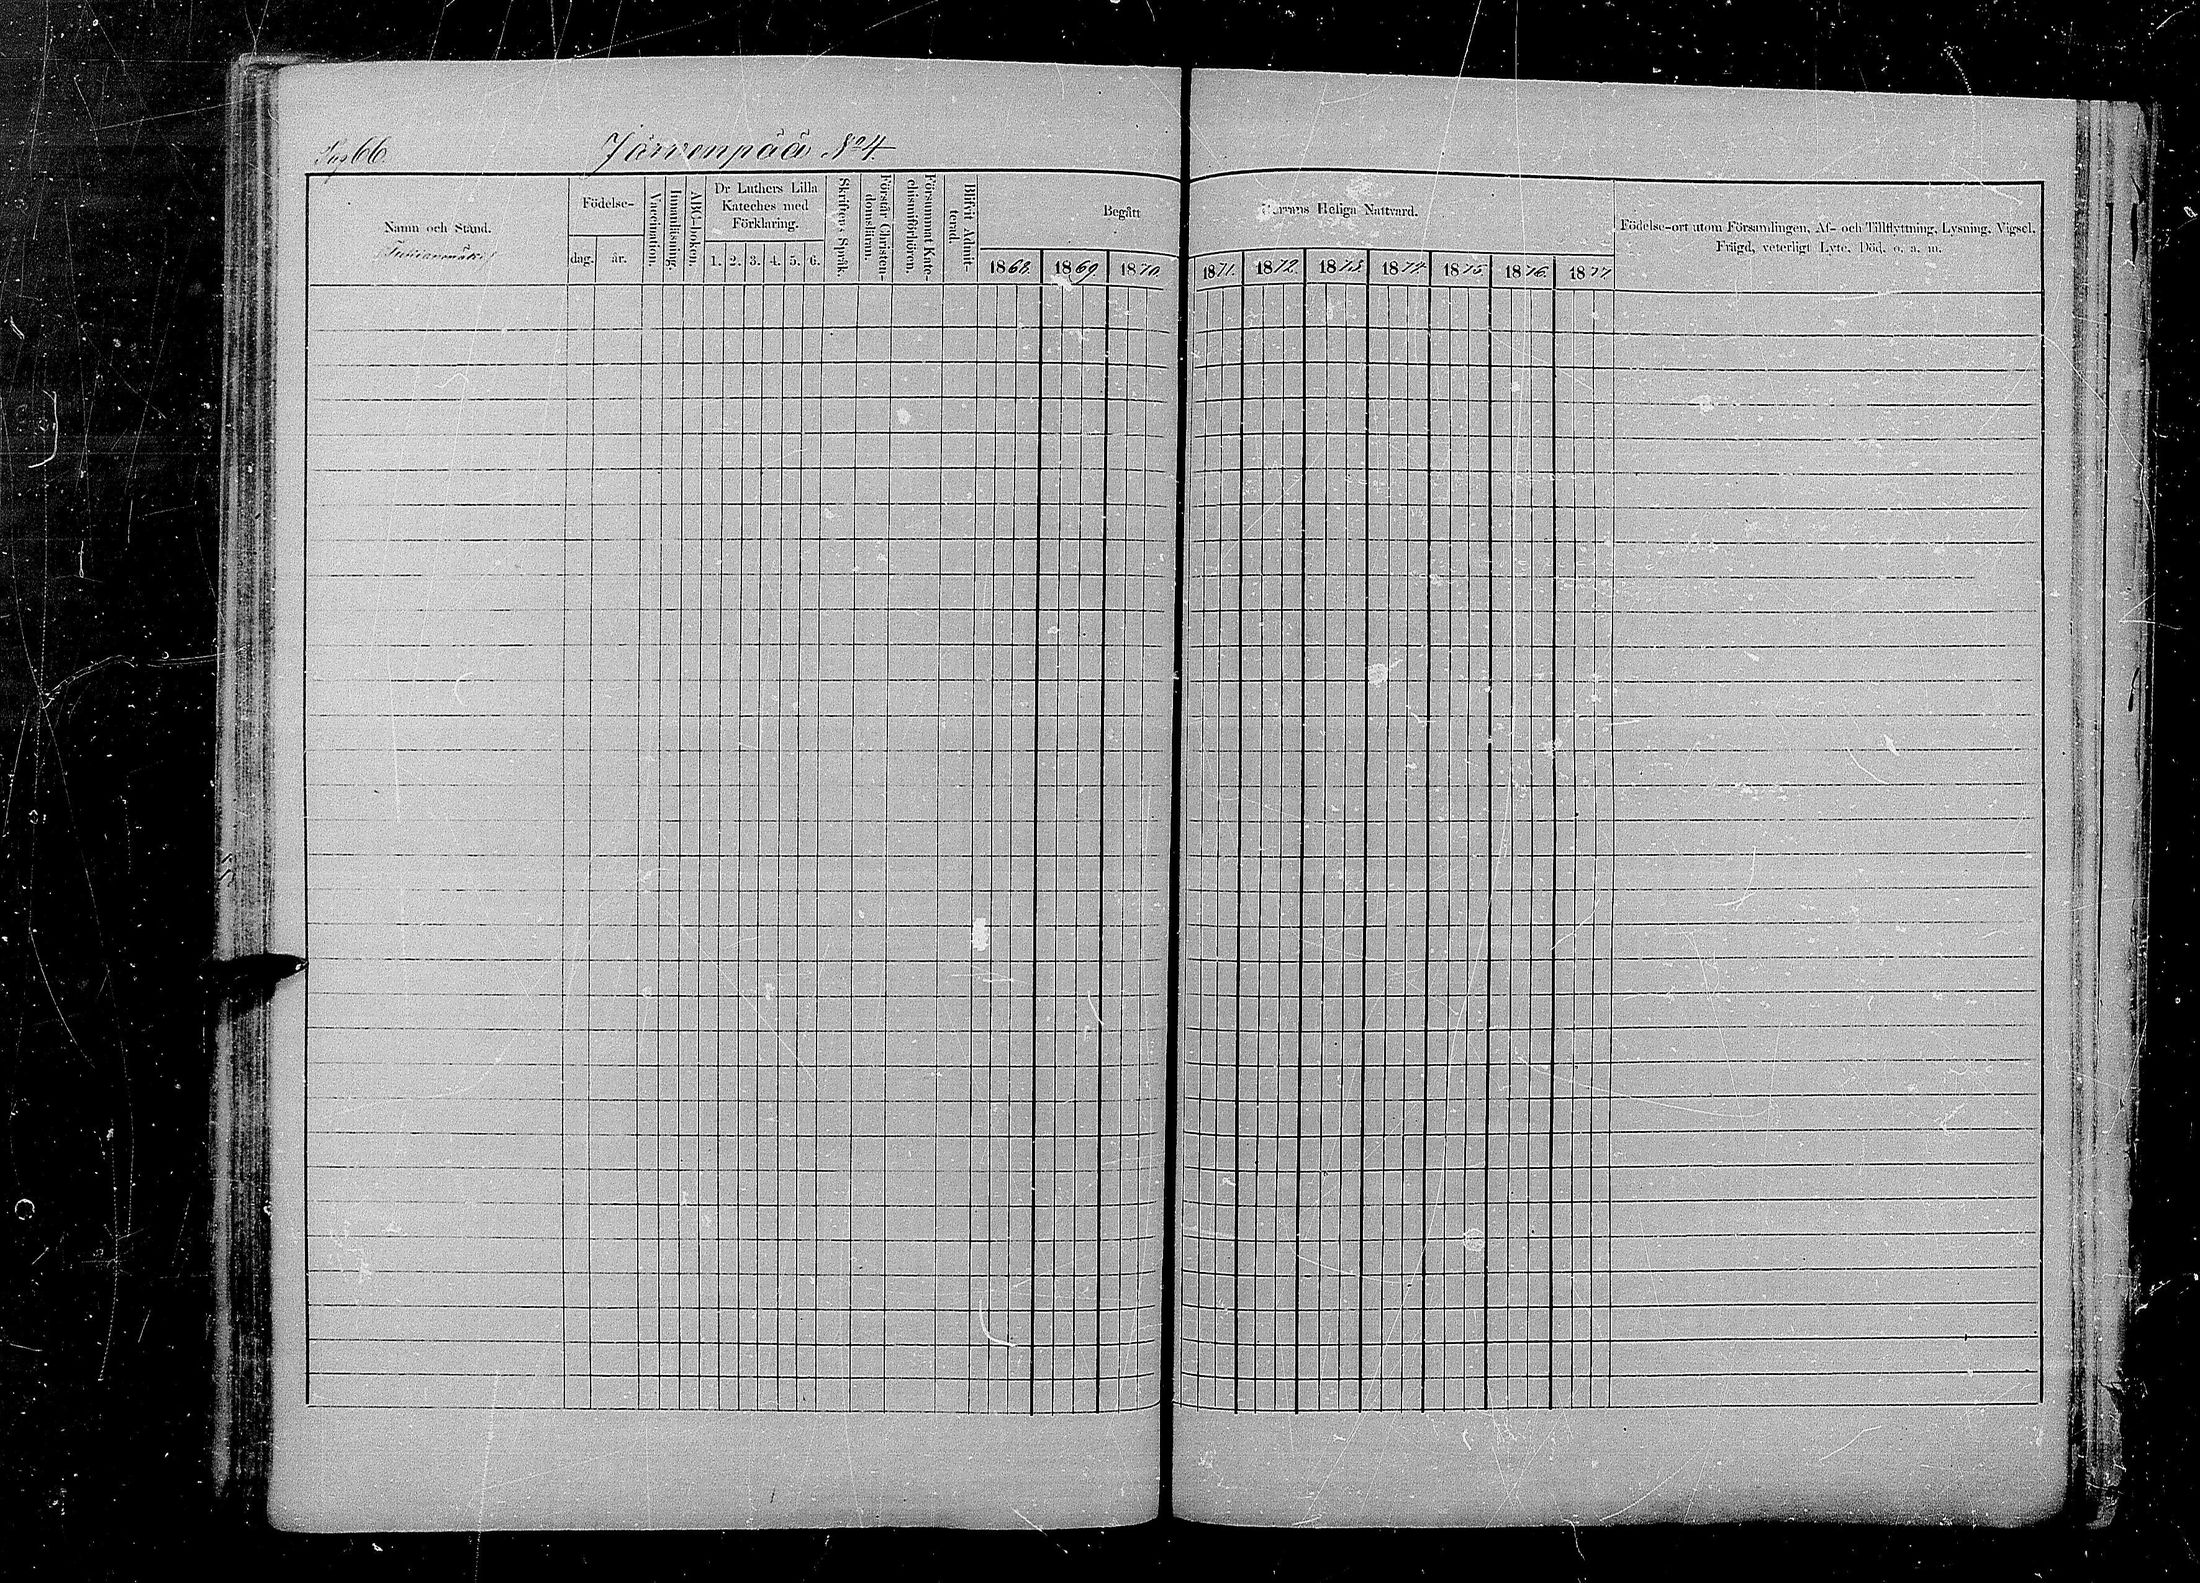 Pag 66. Järvenpää No 4.
Namn och Stånd.
Födelse-
dag. år.
Vaccination.
Innanläsning.
ABC-boken.
Dr Luthers Lilla
Kateches med
Förklaring.
1. 2. 3. 4. 5. 6.
Skriftens Språk.
Förstår Christen-
domsläran.
Försummat Kate-
chismiförhören.
Blifvit Admit-
terad.
Begått Herrans Heliga Nattvard.
1868. 1869. 1870. 1871. 1872. 1873. 1874. 1875. 1876. 1877.
Födelse-ort utom Församlingen, Af- och Tillflyttning, Lysning, Vigsel,
Frägd, veterligt Lyte, Död, o. a. m.